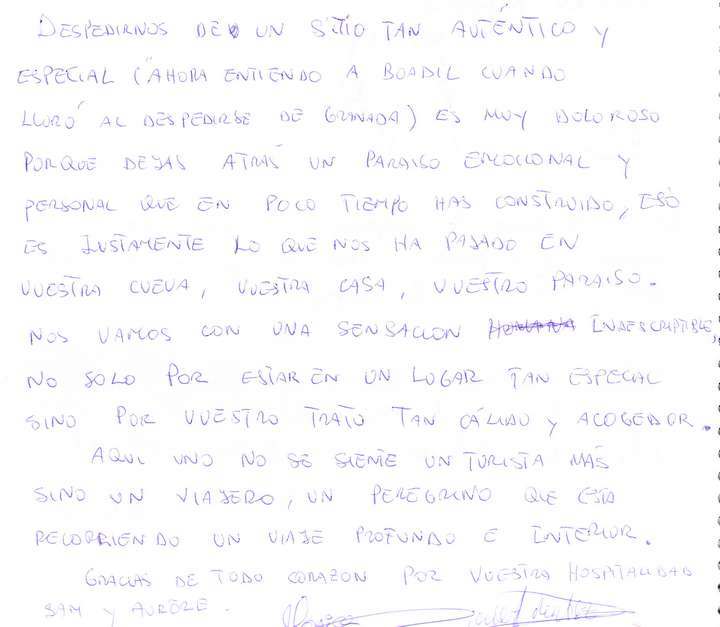 DESPEDIRNOS DE UN SITIO TAN AUTÉNTICO Y
ESPECIAL (AHORA ENTIENDO A BOADIL CUANDO
LLORÓ AL DESPEDIRSE DE GRANADA) ES MUY DOLOROSO
PORQUE DEJAS ATRÁS UN PARAISO EMOCIONAL Y
PERSONAL QUE EN POCO TIEMPO HAS CONSTRUIDO, ESO
ES JUSTAMENTE LO QUE NOS HA PASADO EN
VUESTRA CUEVA, VUESTRA CASA, VUESTRO PARAISO.
NOS VAMOS CON UNA SENSACION INDESCRIPTIBLE,
NO SOLO POR ESTAR EN UN LUGAR TAN ESPECIAL
SINO POR VUESTRO TRATO TAN CÁLIDO Y ACOGEDOR.
AQUI UNO NO SE SIENTE UN TURISTA MÁS
SINO UN VIAJERO, UN PEREGRINO QUE ESTÁ
RECORRIENDO UN VIAJE PROFUNDO E INTERIOR.
GRACIAS DE TODO CORAZON POR VUESTRA HOSPITALIDAD
SAM Y AURORE.